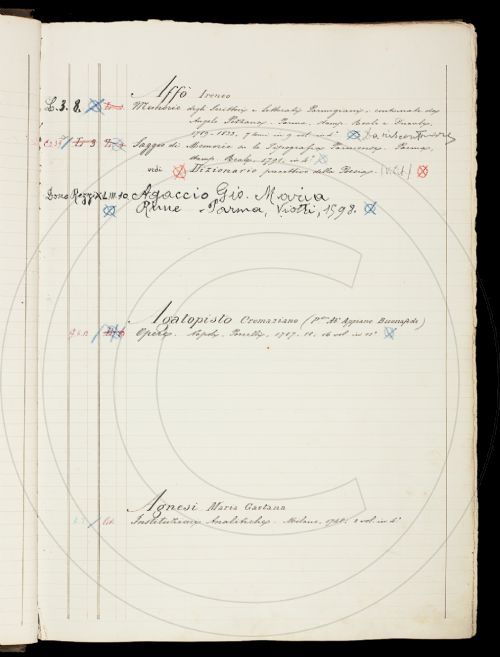 Affò Ireneo
L. 3. 8. Memorie degli Scrittori e letterati Parmigiani, continuate da
Angelo Pezzana. Parma, Stamp. Reale e Ducale,
1789-1833. 7 tomi in 9 vol. in 4°
3 Saggio di Memorie su la Tipografia Parmense. Parma,
Stamp. Reale, 1791. in 4°
vedi Dizionario precettivo della Poesia.
Dono Rezzi XLIII 10 Agaccio Gio. Maria
Rime Parma, Viotti, 1598.
Agatopisto Cromaziano (Appiano Buonafede)
Opere. Napoli, Porcelli, 1787. 16 vol. in 12°
Agnesi Maria Gaetana
Instituzioni Analitiche. Milano, 1748. 2 vol. in 4°
C